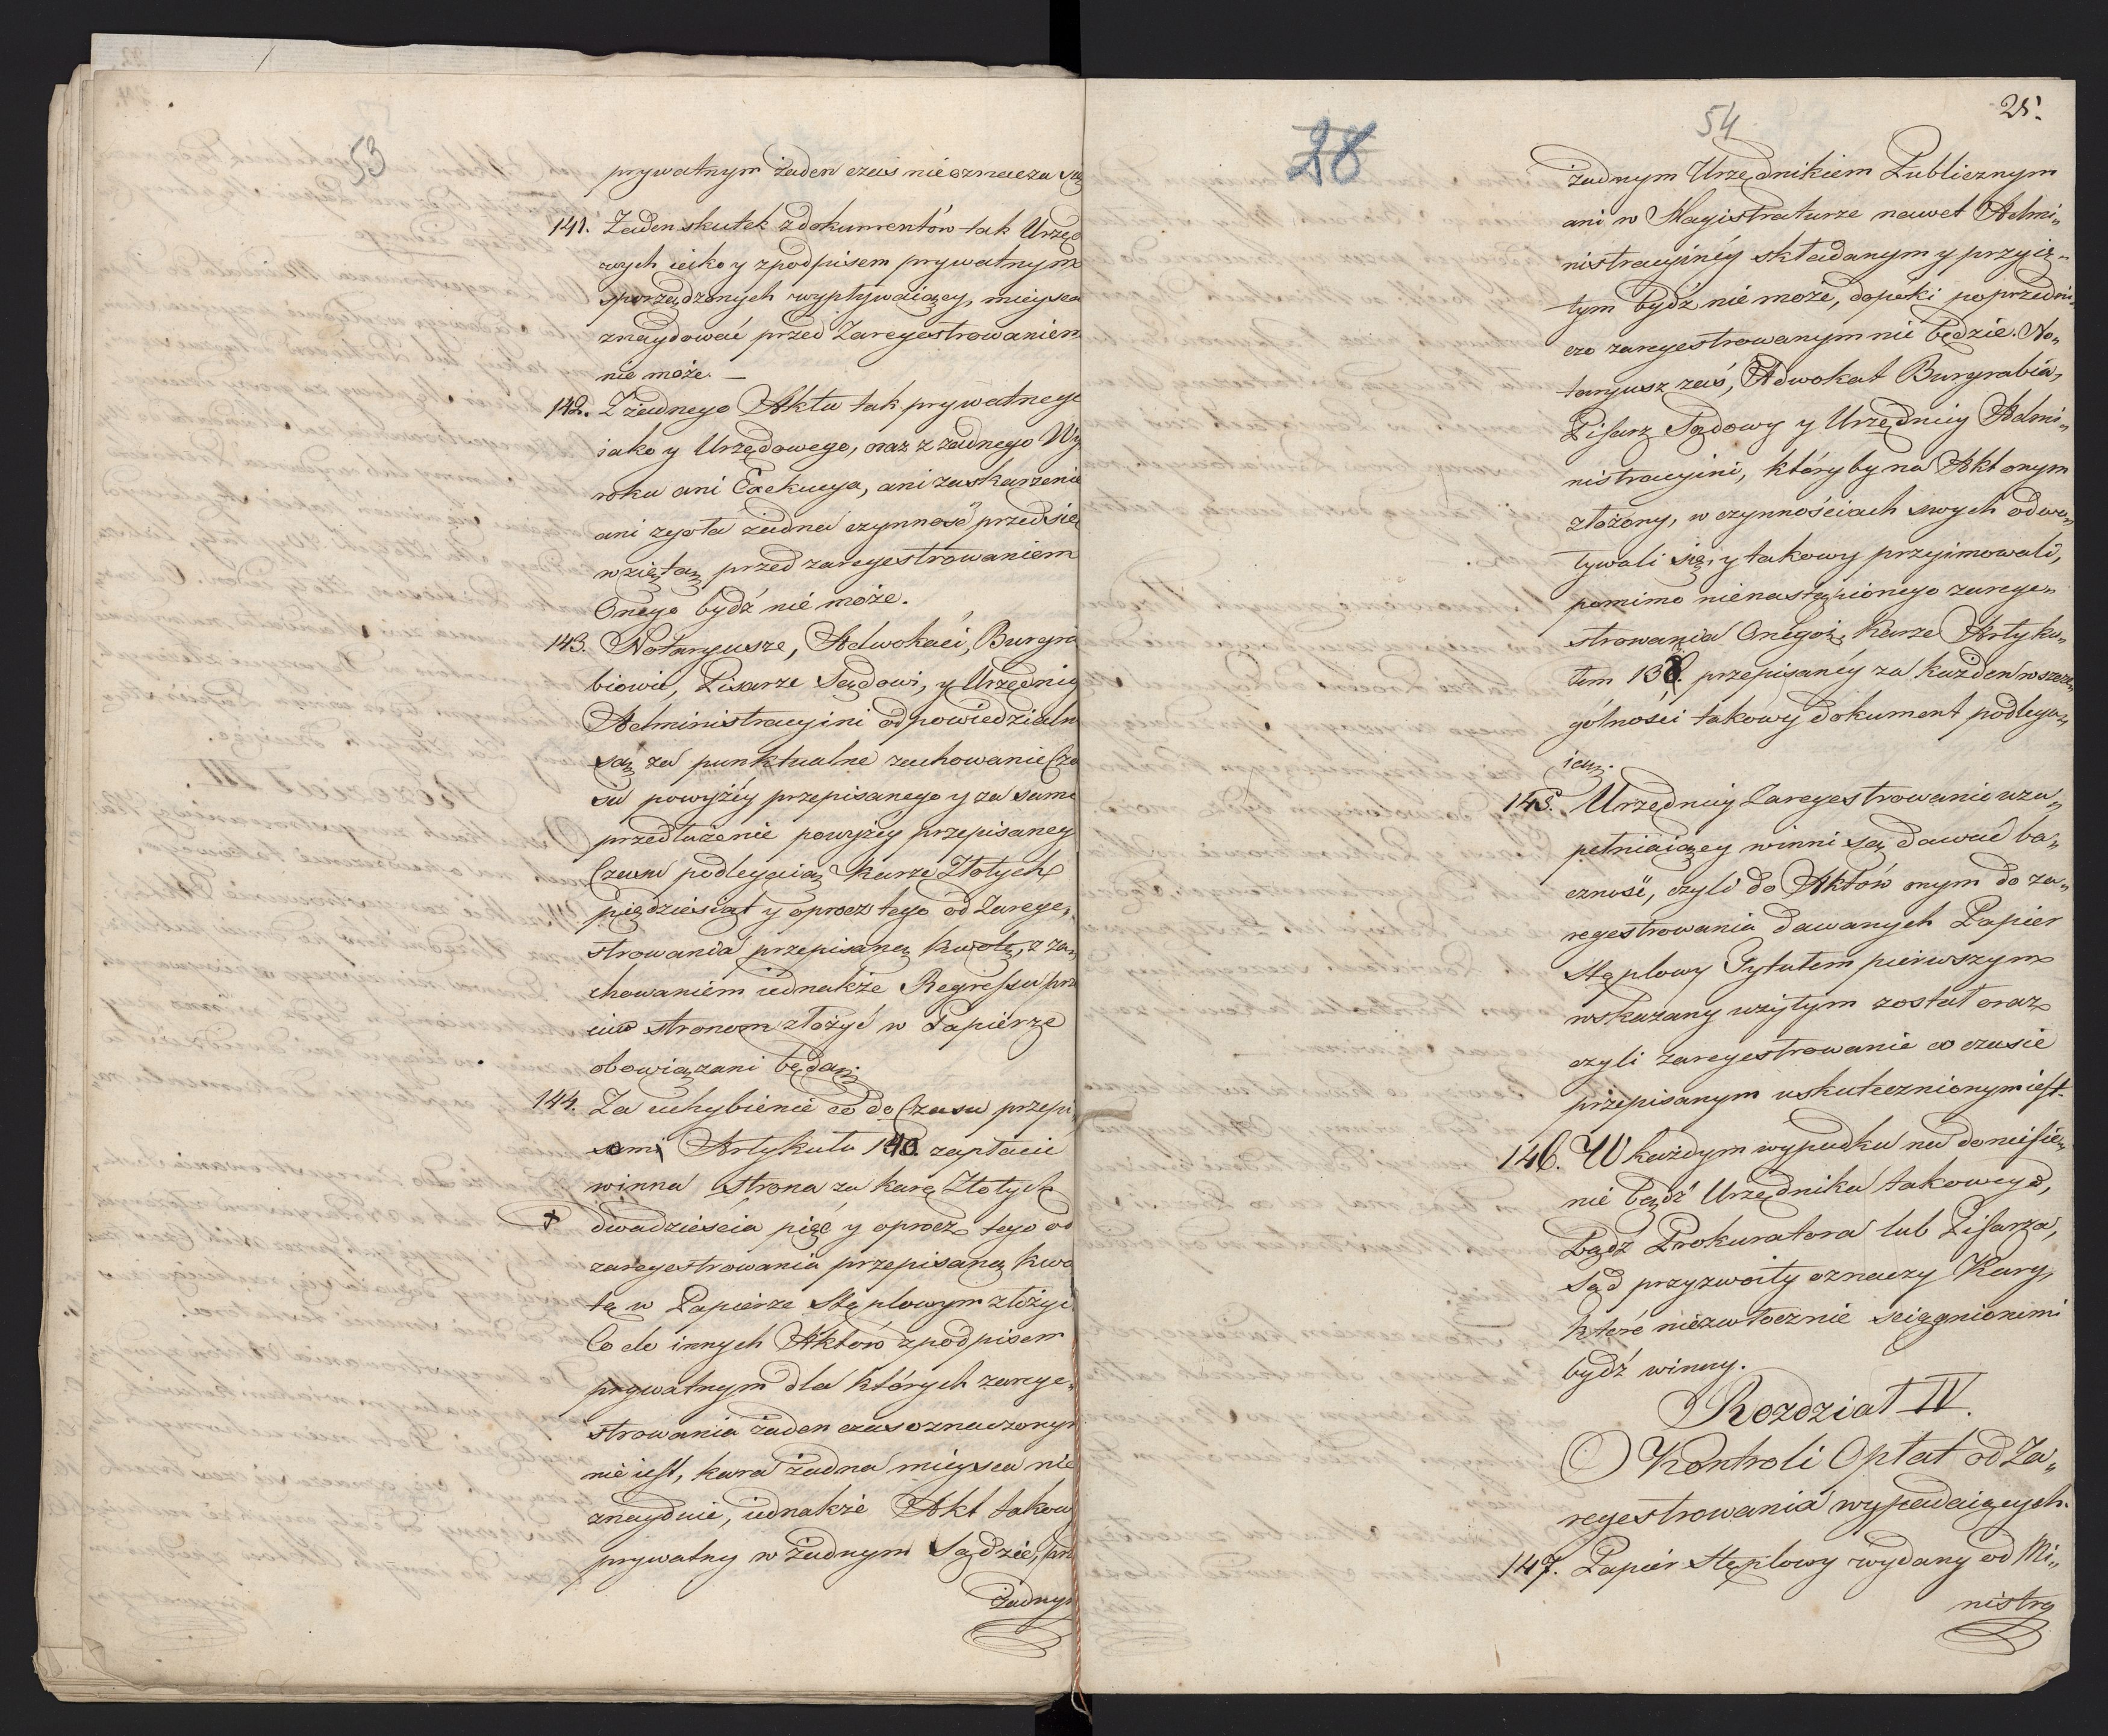 53
prywatnym żaden czas nieoznacza się
141. Żaden skutek z dokumentów tak Urzęd
wych iako y z podpisem prywatnym
sporządzonych wypływaiący, mieysca
znaydować przed Zaregestrowaniem
nie może. —
142. Z żadnego Aktu tak prywatnego
iako y Urzędowego, oraz z żadnego Wy
roku ani Exekucya, ani zaskarżenie
ani zgoła żadna czynność przedsię
wziętą przed zaregestrowaniem
Onego bydź nie może.
143. Notaryusze, Adwokaci, Burgra
biowie, Pisarze Sądowi, y Urzędnicy
Administracyini odpowiedzialni
są za punktualne zachowanie Cza
su powyżéy przepisanego y za samo
przedłużenie powyżéy przepisaneg
Czasu podlegaią karze Złotych
piędziesiąt y oprocz tego od Zarege„
strowania przepisaną kwotę, z za„
chowaniem iednakże Regressu prze
ciw stronom złożyć w Papierze
obowiązani będą.
144. Za uchybienie co do Czasu przepi
sami Artykułu 140. zapłacić
winna strona za karę Złotych
dwadzieścia pięć y oprocz tego od
zaregestrowania przepisaną kwo
tę w Papierze Stęplowym złożyć
Co do innych Aktów z podpisem
prywatnym dla których zarege„
strowania żaden czas oznaczonym
nie iest, kara żadna mieysca nie
znayduie, iednakże Akt takow
prywatny w żadnym Sądzie, prz
żadnym
28
54
25.
żadnym Urzędnikiem Publicznym
ani w Magistraturze nawet Admi„
nistracyinéy składanym y przyię„
tym bydź nie może, dopóki poprzedni„
czo zaregestrowanym nie będzie. No„
taryusz zaś, Adwokat Burgrabia,
Pisarz Sądowy y Urzędnicy Admi„
nistracyini, którzyby na Akt onym
złożony, w czynnościach swych odwo„
ływali się, y takowy przyimowali,
pomimo nienastąpionego zarege„
strowania Onegoż, Karze Artyku„
łem 138. przepisanéy za każden w szcze„
gólności takowy dokument podlega„
ią.
145. Urzędnicy Zaregestrowanie uzu„
pełniaiący winni są dawać ba„
czność, czyli do Aktów onym do za„
regestrowania dawanych Papier
Stęplowy Tytułem pierwszym
wskazany użytym został oraz
czyli zaregestrowanie w czasie
przepisanym uskutecznionym iest.
146. W każdym wypadku na doniesie„
nie bądź Urzędnika takowego,
bądź Prokuratora lub Pisarza,
Sąd przyzwoity oznaczy Kary,
które niezwłocznie sciągnionemi
bydź winny.
Rozdział IV.
O Kontroli Opłat od Za„
regestrowania wypadaiących.
147. Papier Stęplowy wydany od Mi„
nistra